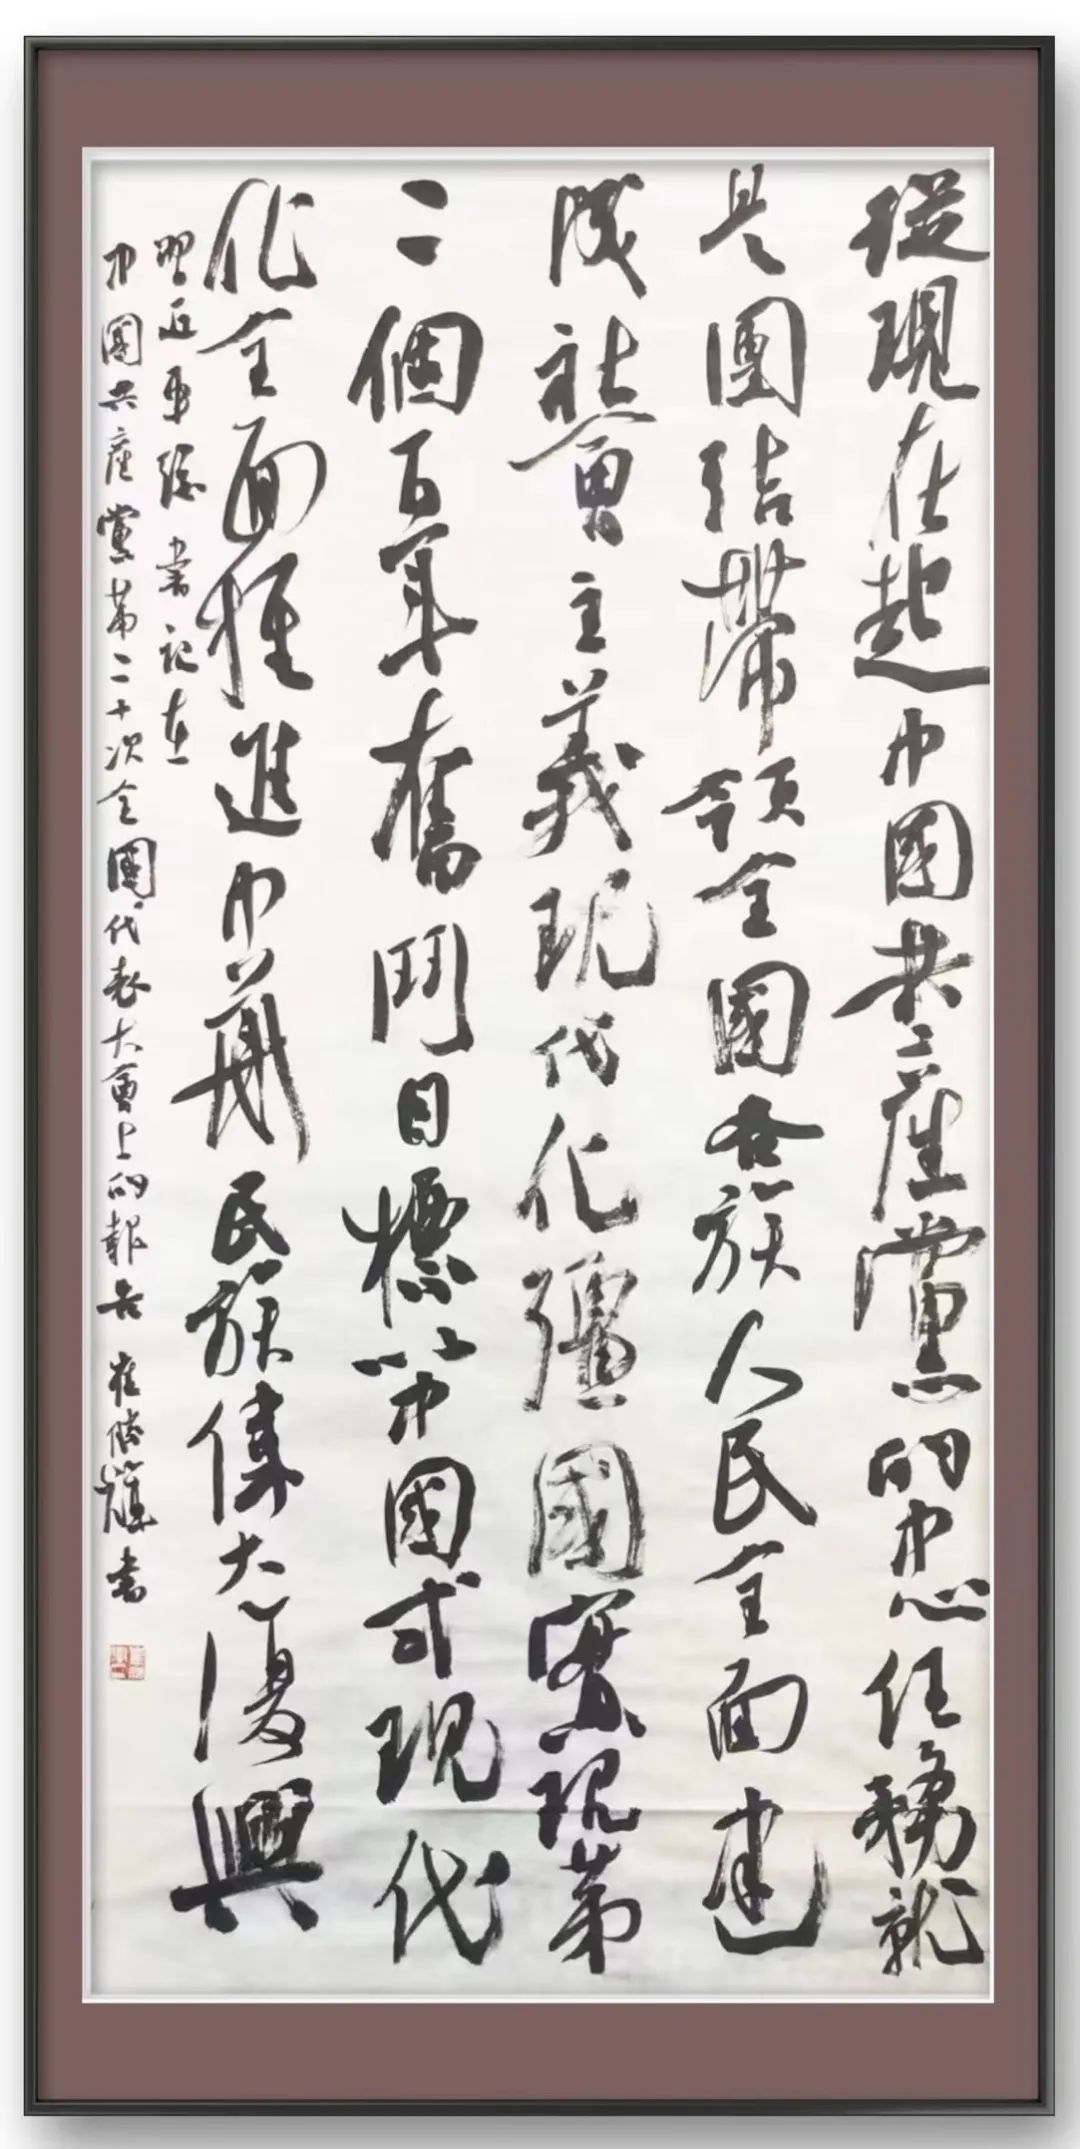 從現在起中國共產黨的中心任務就
是團結帶領全國各族人民全面建
成社會主義現代化彊國實現第
二個百年奮鬥目標以中國式現代
化全面推進中華民族偉大復興
習近平總書記在
中國共產黨第二十次全國代表大會上的報告 崔勝 書